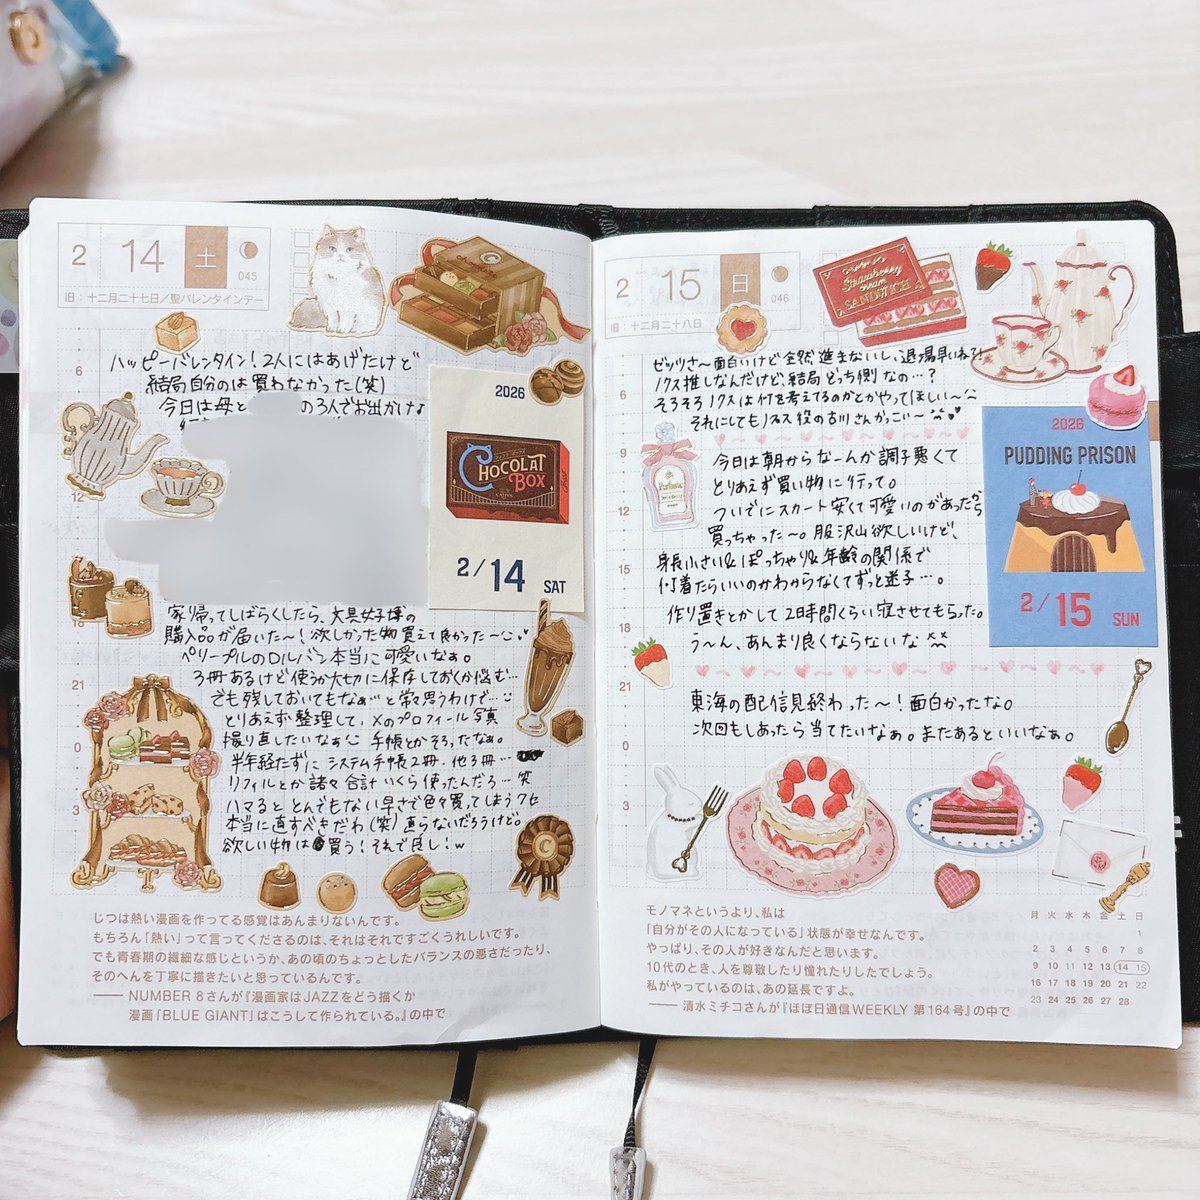 2 14 土 045
旧：十二月二十七日／聖バレンタインデー
ハッピーバレンタイン！2人にはあげたけど
結局自分のは買わなかった(笑)
今日は母と の3人でお出かけ
2026
CHOCOLAT
BOX
2/14 SAT
6
9
12
18
21
0
3
家帰ってしばらくしたら、文具女子博の
購入品が届いた〜！欲しかった物買えて良かった〜
ペリープルのロルバン本当に可愛いなぁ。
3冊あるけど使うか大切に保存しておくか悩む…
でも残しておいてもなぁ…と常々思うわけで…
とりあえず整理して、Xのプロフィール写真
撮り直したいなぁ 手帳とかそろったなぁ。
半年経たずに システム手帳2冊、他3冊…
リフィルとか諸々合計いくら使ったんだろ…笑
ハマるととんでもない早さで色々買ってしまうクセ
本当に直すべきだわ(笑)直らないだろうけど。
欲しい物は買う！それで良し！w
C
じつは熱い漫画を作ってる感覚はあんまりないんです。
もちろん「熱い」って言ってくださるのは、それはそれですごくうれしいです。
でも青春期の繊細な感じというか、あの頃のちょっとしたバランスの悪さだったり、
そのへんを丁寧に描きたいと思っているんです。
―― NUMBER 8さんが『漫画家はJAZZをどう描くか
漫画「BLUE GIANT」はこうして作られている。』の中で
2 15 日 046
旧：十二月二十八日
Strawberry
cream
SANDWICH
ゼッツさ〜面白いけど全然進まないし、退場早いね？！
ノクス推しなんだけど、結局どっち側なの…？
そろそろノクスは何を考えてるのかとかやってほしい〜
それにしてもノクス役の古川さんかっこい〜
今日は朝からなーんか調子悪くて
とりあえず買い物に行って。
ついでにスカート安くて可愛いのがあったから
買っちゃった〜。服沢山欲しいけど、
身長小さい&ぽっちゃり&年齢の関係で
何着たらいいのかわからなくてずっと迷子…。
作り置きとかして2時間くらい寝させてもらった。
う〜ん、あんまり良くならないな
2026
PUDDING PRISON
2/15 SUN
6
9
12
15
18
21
0
3
東海の配信見終わった〜！面白かったな。
次回もしあったら当てたいなぁ。またあるといいなぁ。
モノマネというより、私は
「自分がその人になっている」状態が幸せなんです。
やっぱり、その人が好きなんだと思います。
10代のとき、人を尊敬したり憧れたりしたでしょう。
私がやっているのは、あの延長ですよ。
―― 清水ミチコさんが『ほぼ日通信WEEKLY 第164号』の中で
月 火 水 木 金 土 日
1
2 3 4 5 6 7 8
9 10 11 12 13 14 15
16 17 18 19 20 21 22
23 24 25 26 27 28